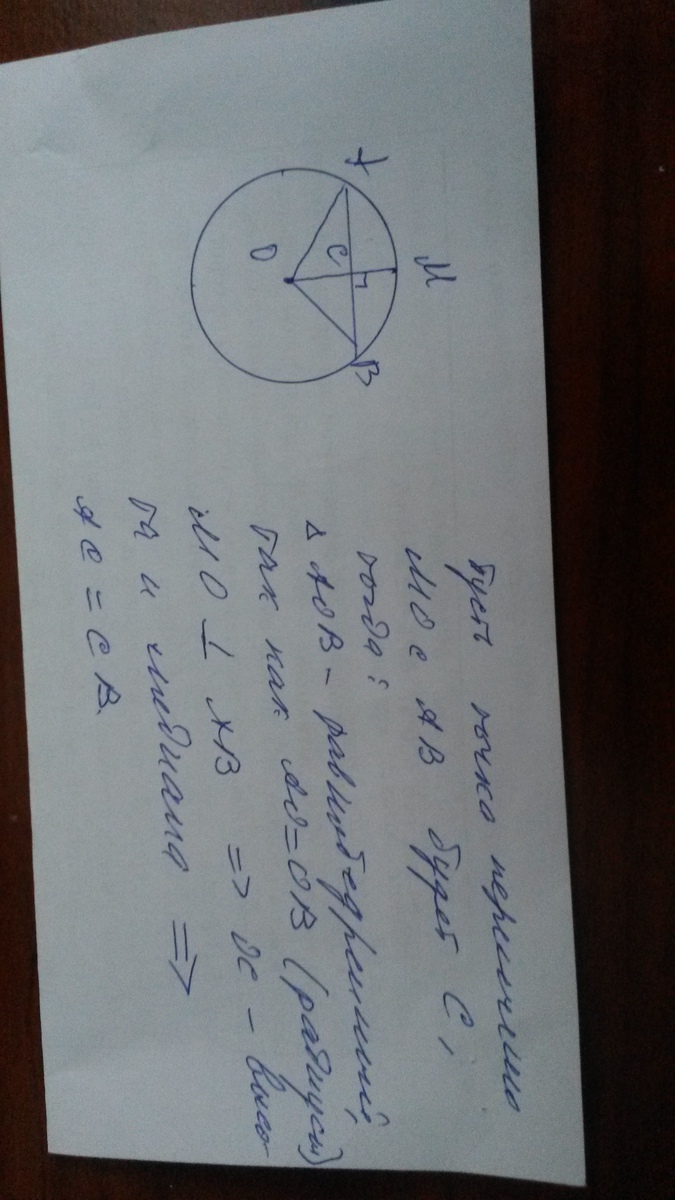 A
M
O
C
B
Пусть точка пересечения
MO с AB будет C,
тогда:
△ AOB - равнобедренный,
так как AO=OB (радиусы)
MO ⊥ AB => OC - высо
та и медиана =>
AC = CB.